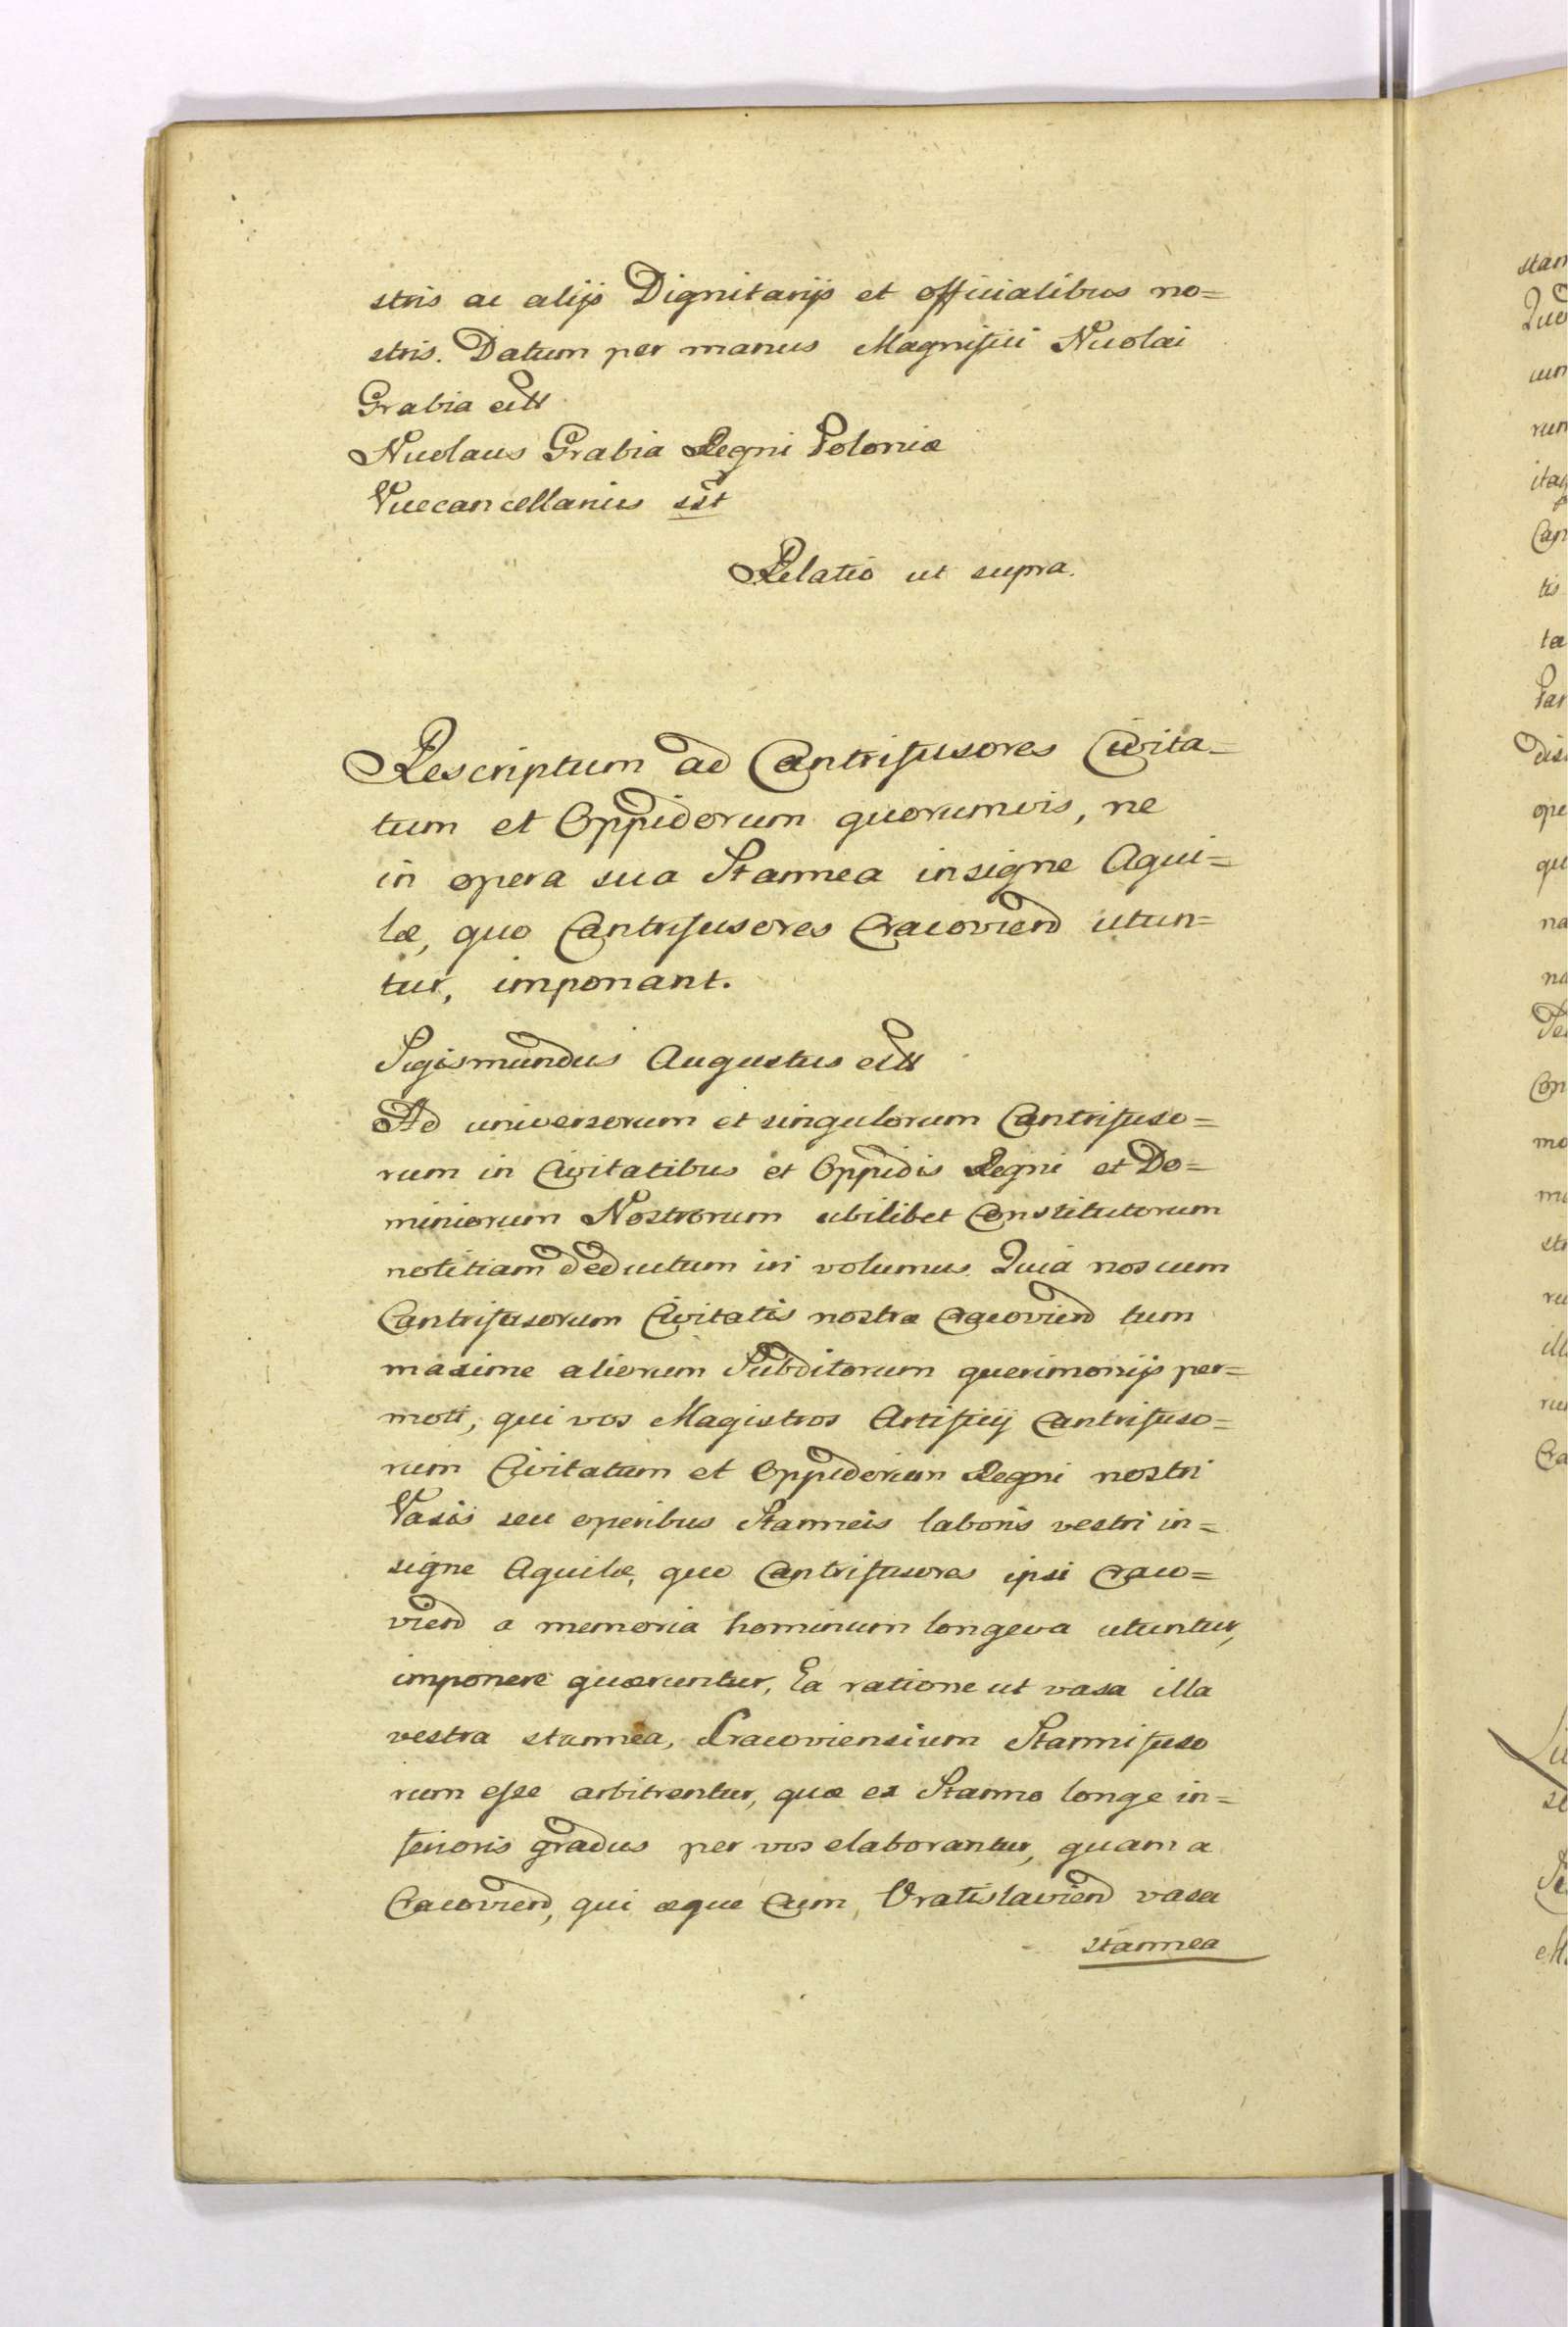 stris ac alijs Dignitarijs et officialibus no=
stris. Datum per manus Magnifici Nicolai
Grabia
Nicolaus Grabia Regni Poloniæ
Vicecancellarius sst
Relatio ut supra.
Rescriptum ad Cantrifusores Civita=
tum et Oppidorum quorumvis, ne
in opera sua Stannea insigne Aqui=
læ, quo Cantrifusores Cracovien̄ utun=
tur, imponant.
Sigismundus Augustus
Ad universorum et singulorum Cantrifuso=
rum in Civitatibus et Oppidis Regni et Do=
miniorum Nostrorum ubilibet Constitutorum
notitiam deductum iri volumus. Quia nos cum
Cantrifusorum Civitatis nostræ Cracovien̄ tum
maxime aliorum Subditorum querimonijs per=
moti, qui vos Magistros Artificij Cantrifuso=
rum Civitatum et Oppidorum Regni nostri
Vasis seu operibus Stanneis laboris vestri in=
signe Aquilæ, quo Cantrifusores ipsi Craco=
vien̄ a memoria hominum longeva utuntur,
imponere quæruntur, Ea ratione ut vasa illa
vestra stannea, Cracoviensium Stannifuso
rum esse arbitrentur, quæ ex Stanno longe in=
ferioris gradus per vos elaborantur, quam a
Cracovien̄, qui æque cum Vratislavien̄ vasa
stannea